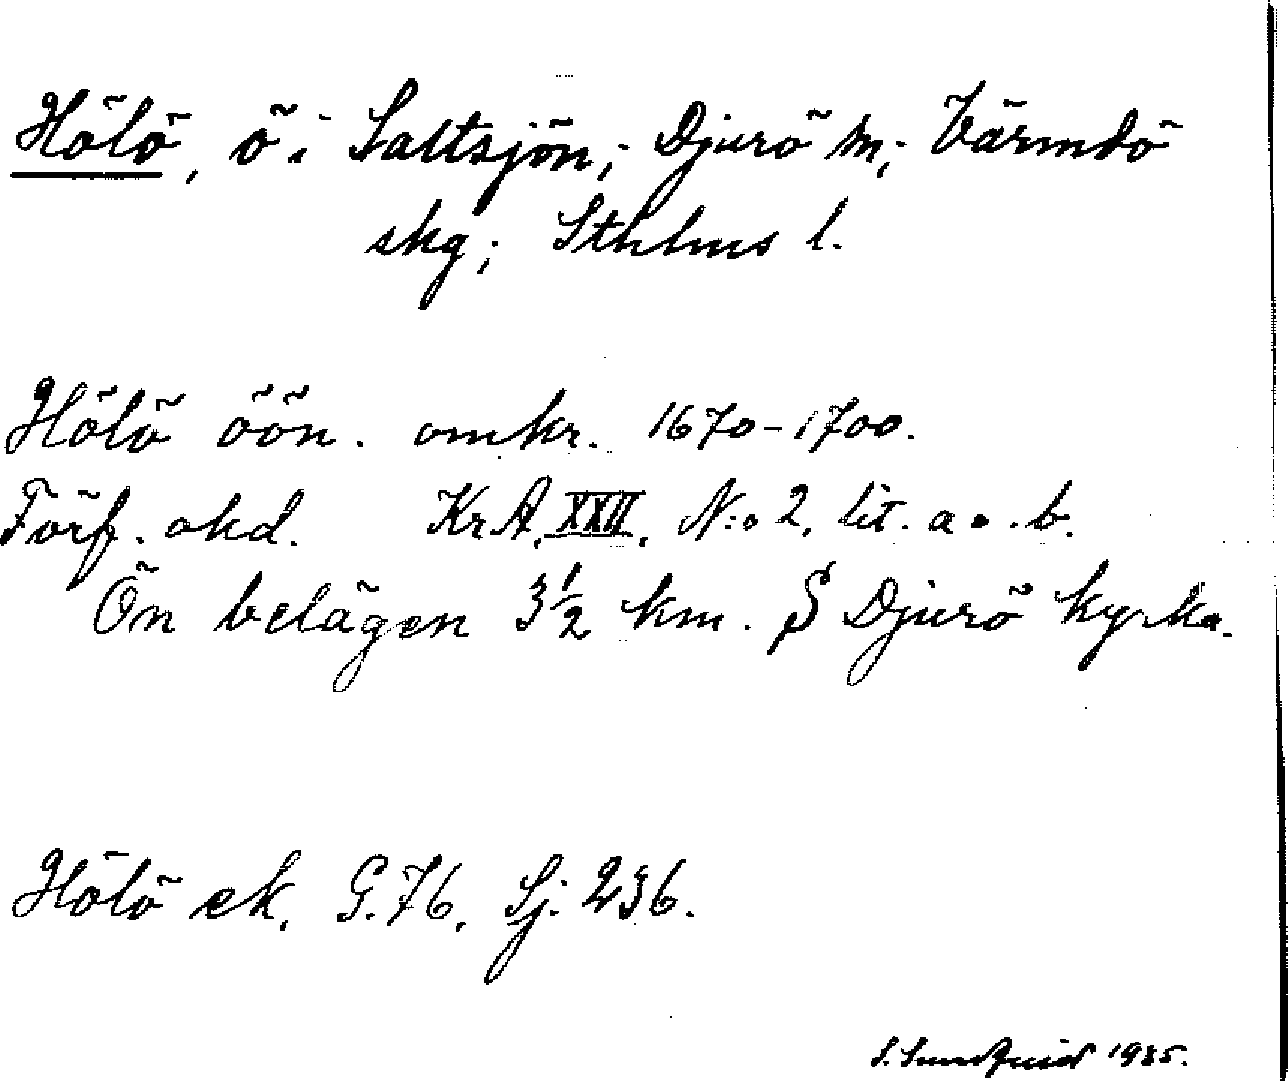 Hölö, ö i Saltsjön; Djurö sn; Värmdö
skg; Sthlms l.
Hölö öön. omkr. 1670-1700.
Förf. okd. KrA. XXII. N:o 2. lit. a o. b.
Ön belägen 3½ km. S Djurö kyrka.
Hölö ek. G.76. Sj. 236.
1935.